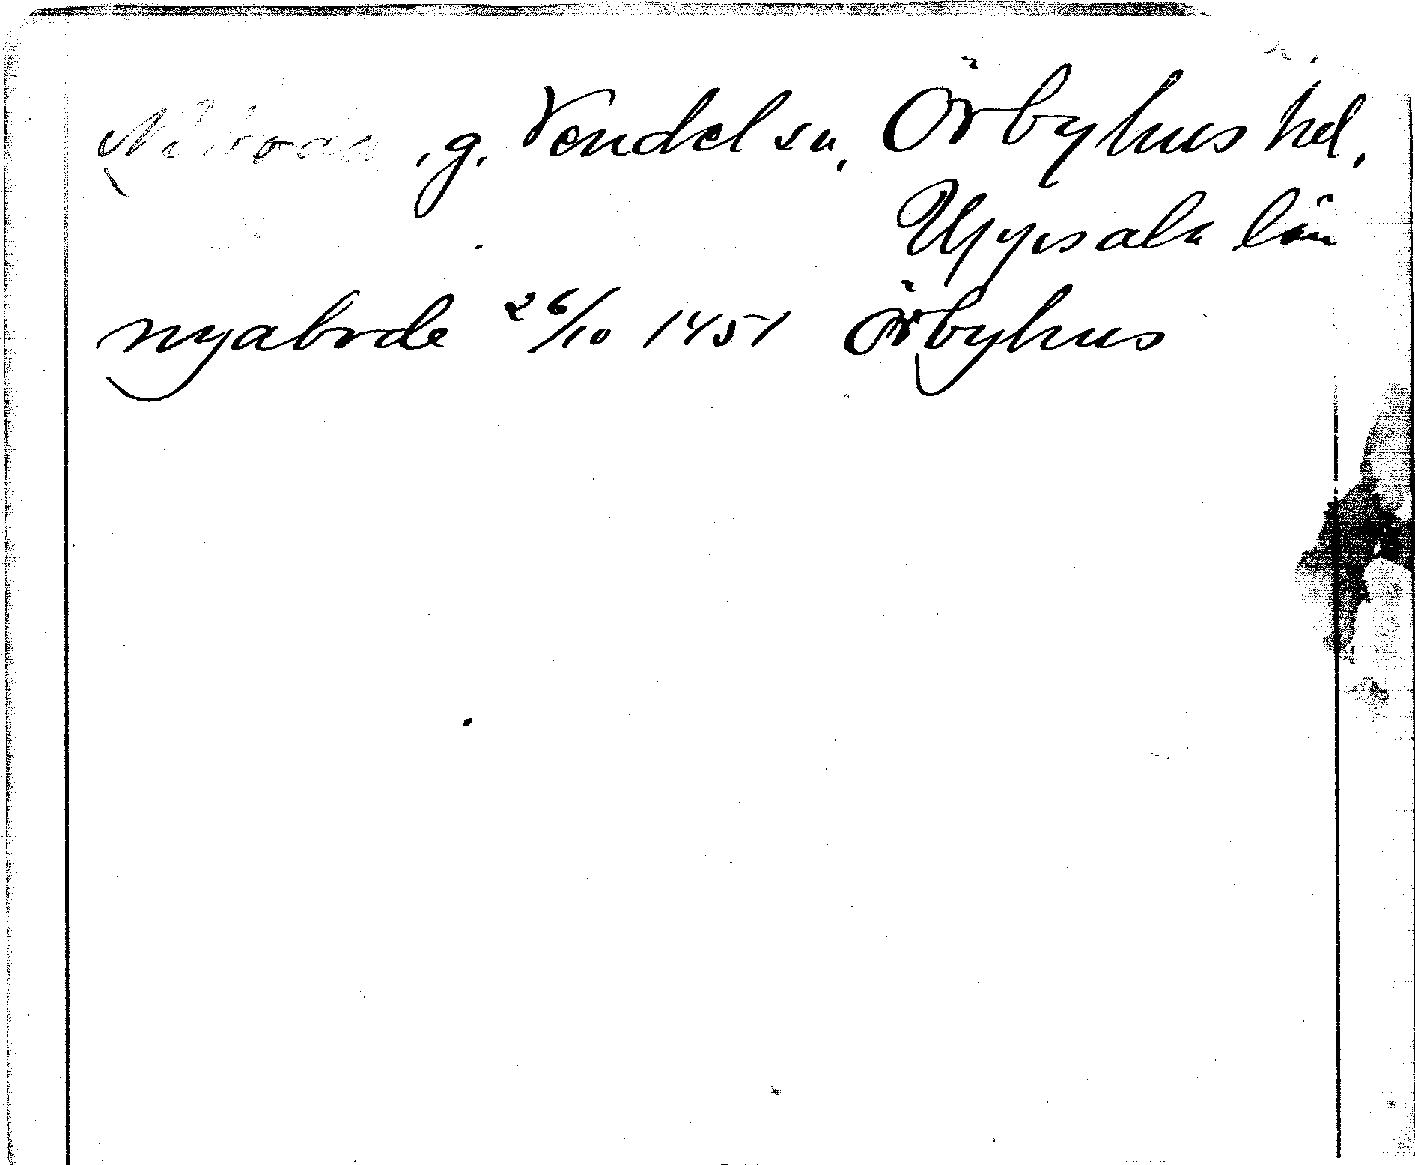 g. Vendel sn, Örbyhus hd,
Uppsala län
nyabode 26/10 1451 Örbyhus